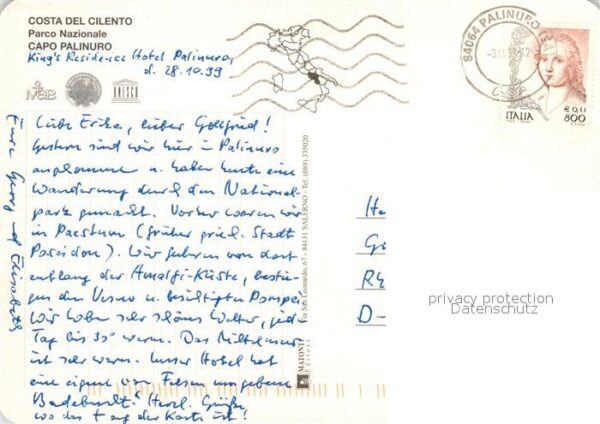 COSTA DEL CILENTO
Parco Nazionale
CAPO PALINURO
King's Residence Hotel Palinuro,
d. 28.10.99
MaB
UNESCO
Liebe Erika, lieber Gottfried!
Gestern sind wir hier in Palinuro
angekommen u. haben heute eine
Wanderung durch den National-
park gemacht. Vorher waren wir
in Paestum (früher griech. Stadt
Poseidon). Wir fuhren von dort
entlang der Amalfi-Küste, bestie-
gen den Vesuv u. besichtigten Pompei
Wir haben sehr schönes Wetter, jed.
Tag bis 30° warm. Das Mittelmeer
ist sehr warm. Unser Hotel hat
eine eigene von Felsen umgebene
Badebucht. Herzl. Grüße
wo das + auf der Karte ist!
Eure Georg und Elisabeth
84064 PALINURO (SA)
ITALIA
€ 0,41
800
MATONTI
Via San Leonardo, 67 - 84131 SALERNO - Tel. (089) 335020
He
Gö
D-
privacy protection
Datenschutz